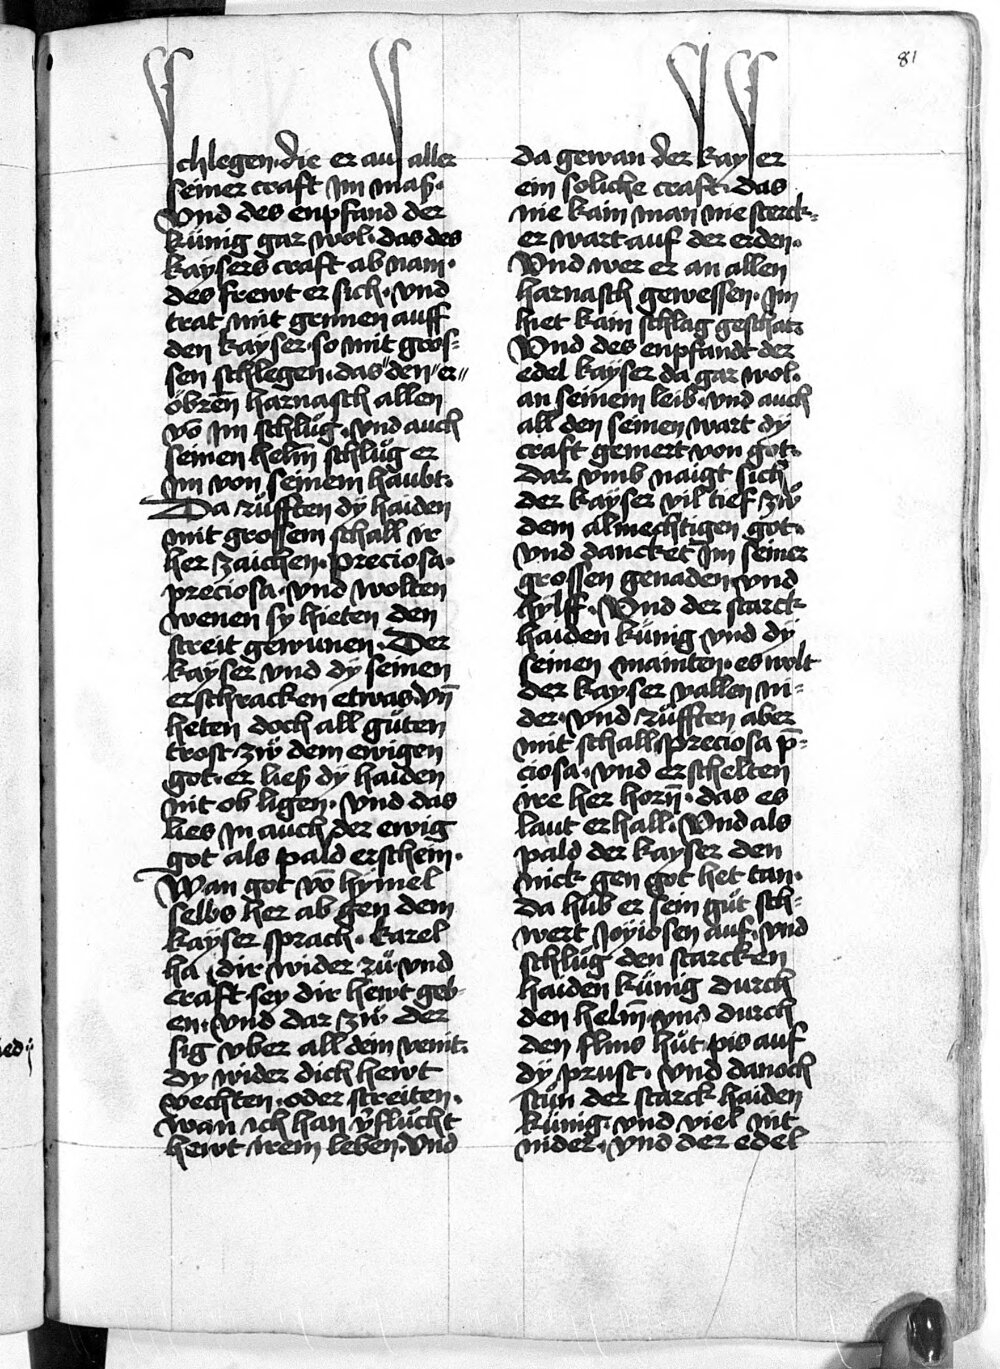 81
schlegen. die er aus aller
seiner craft Im maß.
Vnd des enpfand der
künig gar wol. das des
kaÿsers craft ab nam.
des frewt er sich. vnd
trat mit grimen auff
den kayser. so mit gros=
sen schlegen. das den er
öbren harnasch allen
vō Im schlůg. vnd auch
seinen helm̄ schlůg er
Im von seinem haubt.
Da růfften dÿ haiden
mit grossem schall ir
her zaichen. preciosa.
preciosa. vnd wolten
wenen sy hieten den
streit gewunen. Der
kayser vnd dÿ seinen
erschracken etwas. vn̄
heten doch all gůten
trost. zů dem ewigen
got. er ließ dÿ haiden
nit ob ligen. vnd das
lies In auch der ewig
got als pald erschein.
Wan got vō hÿmel
selbs her ab gen dem
kaÿser sprach. karel
ha dir wider zů. vnd
craft sey dir hewt geb=
en. vnd dar zů der
sig vber all dem venit.
dy wider dich hewt
vechten. oder streiten.
wan ich han v̄flůcht
hewt irem leben. vnd
da gewan der kayser
ein soliche craft. das
nie kain man nie sterck=
er wart auf der erden.
Vnd wer er an allen
harnasch gewessen. Im
hiet kain schlag geschatz
Vnd des enpfandt der
edel kayser da gar wol.
an seinem leib. vnd auch
all den seinen wart dÿ
craft gemert von got.
Dar vmb naigt sich
der kaÿser vil tief zů
dem almechtigen got.
vnd dancket Im seiner
grossen genaden vnd
hylff. Vnd der starck
haiden künig vnd dÿ
seinen mainten. es wolt
der kayser vallen ni=
der. vnd růfften aber
mit schall preciosa p̄=
ciosa. vnd erschelten
ire her horn̄. das es
laut erhall. Vnd als
pald der kayser den
nick gen got het tan.
da hůb er sein gůt sch=
wert Joyiosen auf. vnd
schlůg den starcken
haiden künig durch
den helm̄ vnd durch
den flins hůt. pis auf
dÿ prust. vnd danoch
stůn der starck haiden
künig. vnd viel nit
nider. vnd der edel